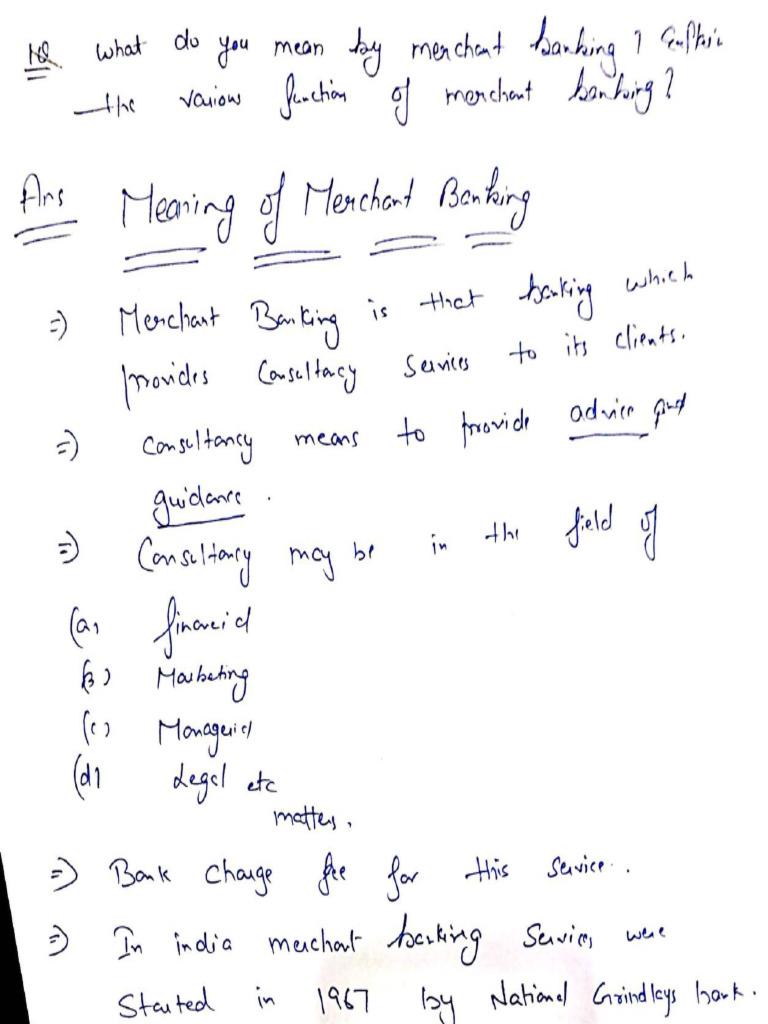 NQ What do you mean by merchant banking ? Explain
the various function of merchant banking ?
Ans Meaning of Merchant Banking
=) Merchant Banking is that banking which
provides Consultacy Services to its clients.
=) Consultancy means to provide advice and
guidance .
=) Consultancy may be in the field of
(a) financial
(b) Marketing
(c) Managerial
(d) Legal etc
matters.
=) Bank Charge fee for this Service .
=) In india merchant banking Services were
Started in 1967 by National Grindlays bank .